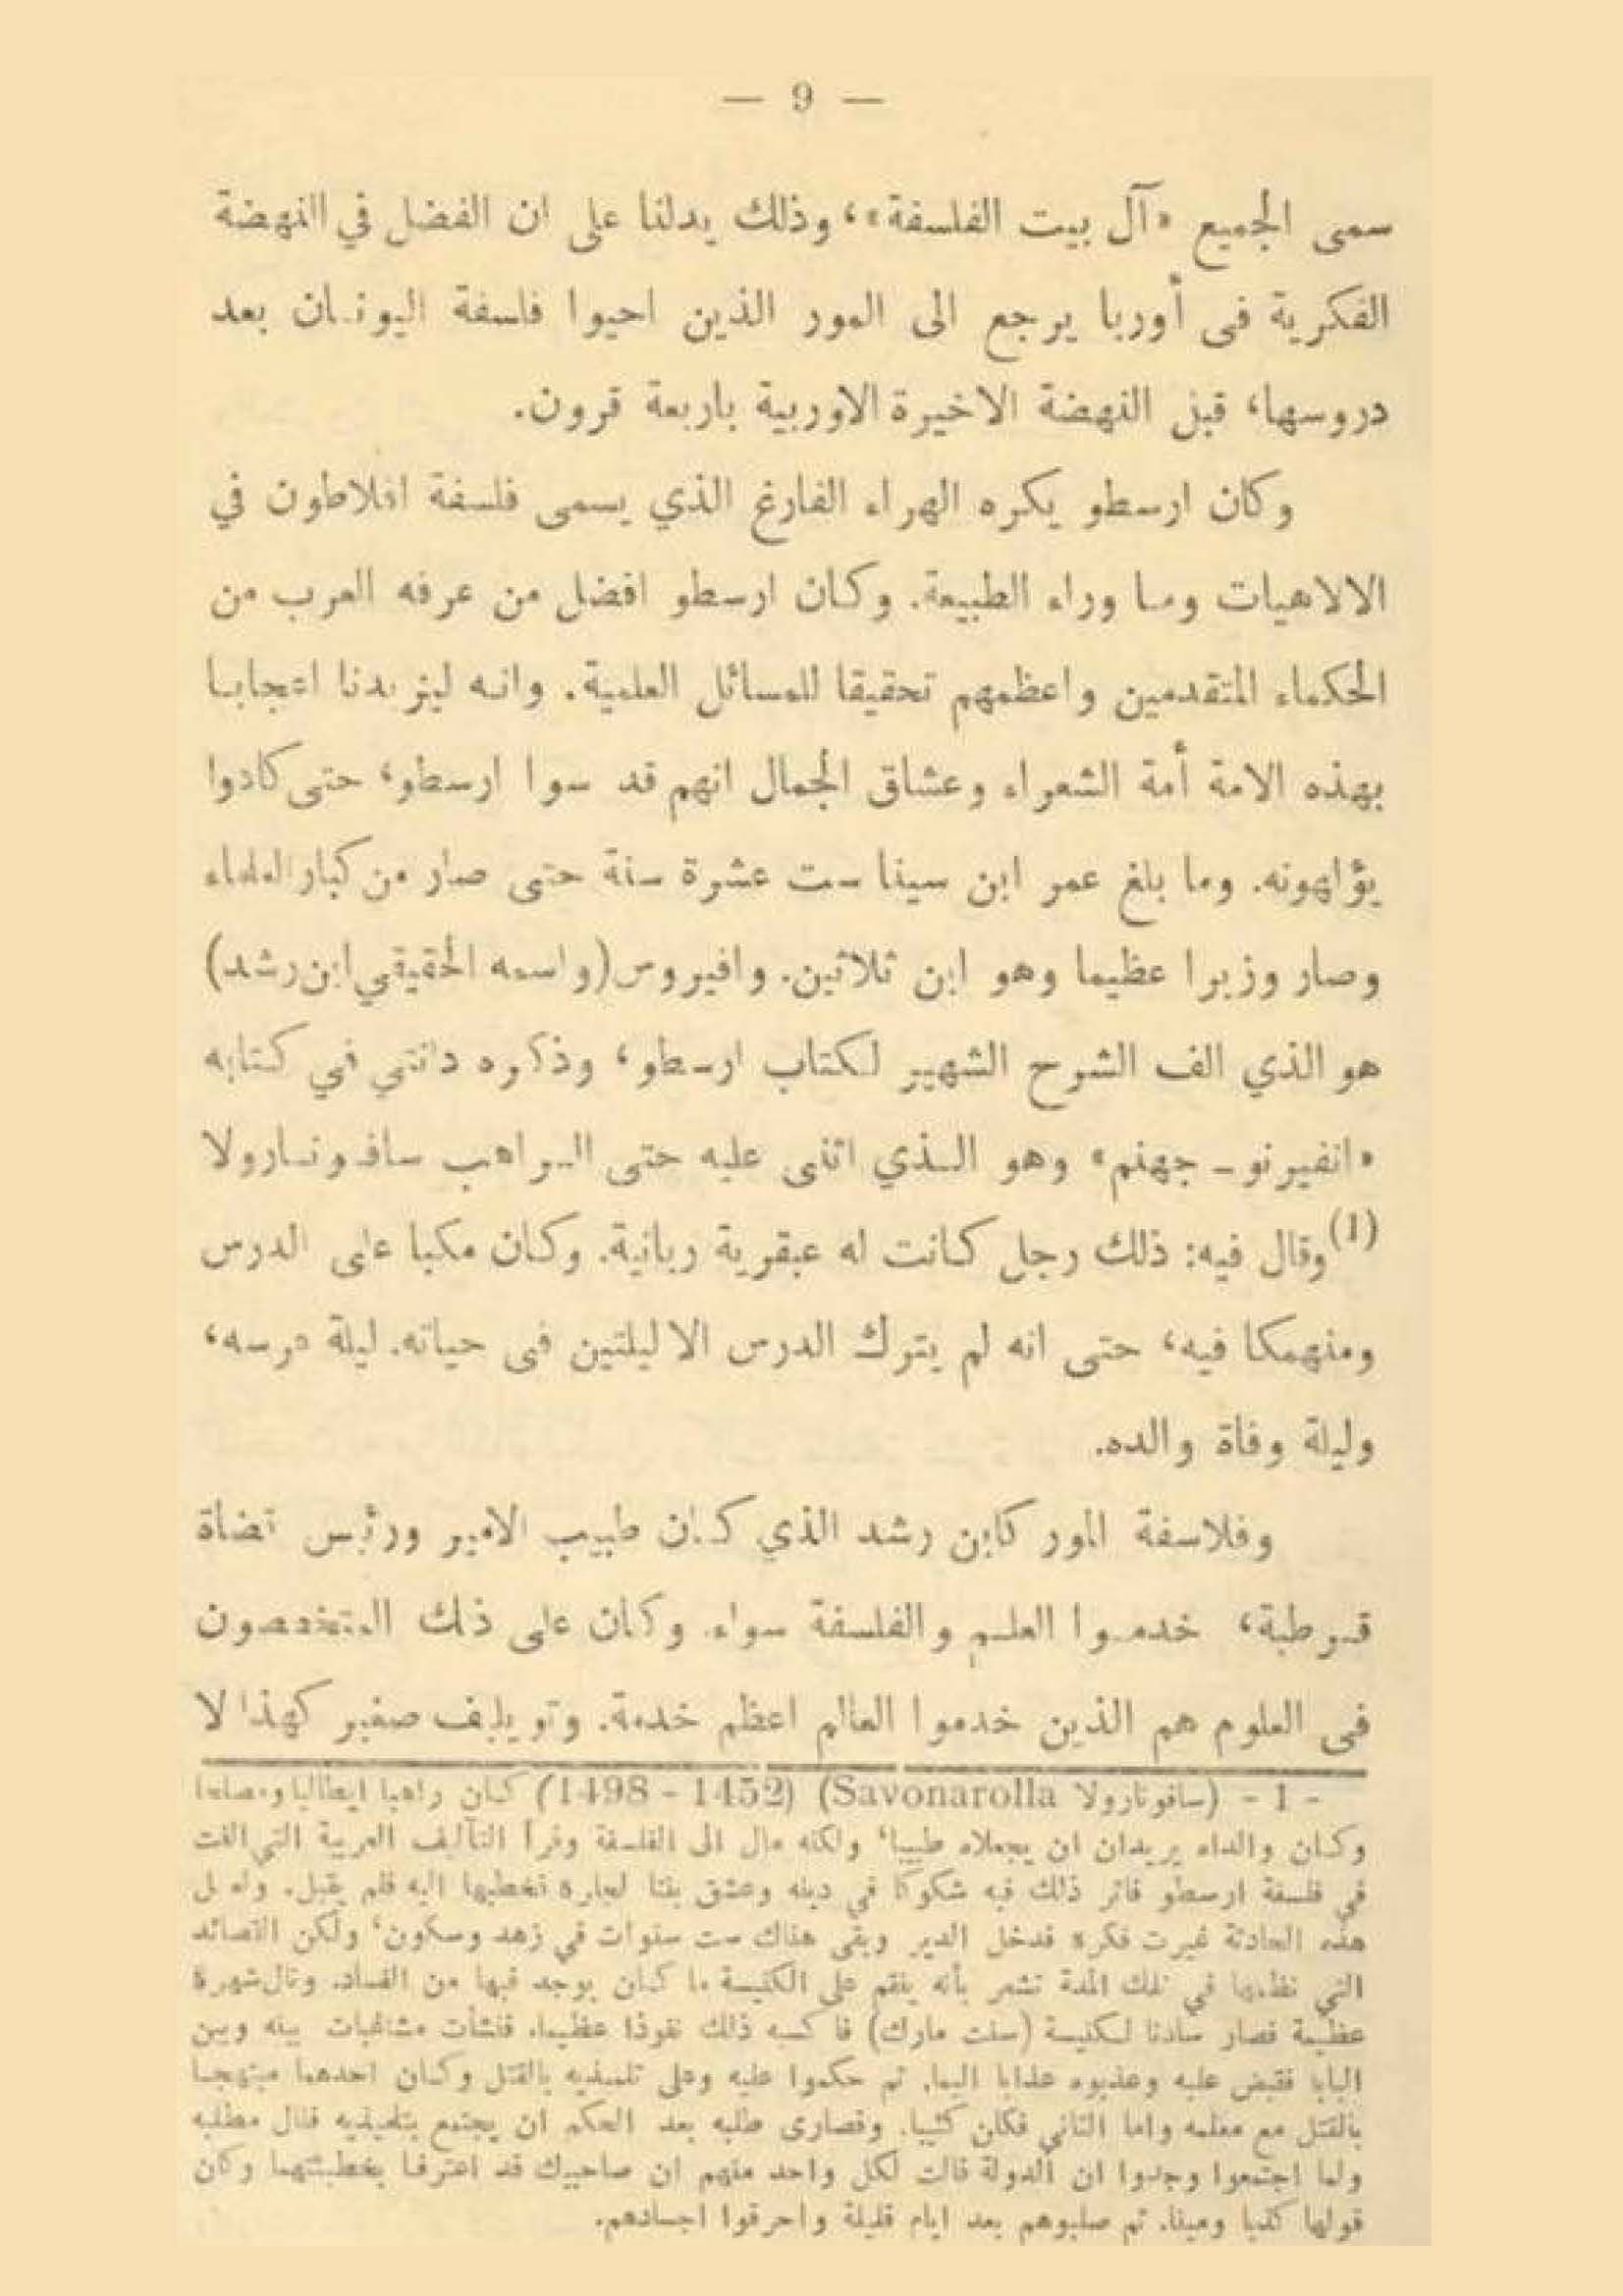 — 9 —
سمى الجميع «آل بيت الفلسفة»، وذلك يدلنا على ان الفضل في النهضة
الفكرية فى أوربا يرجع الى المور الذين احيوا فلسفة اليونان بعد
دروسها، قبل النهضة الاخيرة الاوربية باربعة قرون.
وكان ارسطو يكره الهراء الفارغ الذي يسمى فلسفة افلاطون في
الالاهيات وما وراء الطبيعة. وكان ارسطو افضل من عرفه العرب من
الحكماء المتقدمين واعظمهم تحقيقا للمسائل العلمية. وانه ليزيدنا اعجابا
بهذه الامة أمة الشعراء وعشاق الجمال انهم قد سوا ارسطو، حتى كادوا
يؤلهونه. وما بلغ عمر ابن سينا ست عشرة سنة حتى صار من كبار العلماء
وصار وزيرا عظيما وهو ابن ثلاثين. وافيروس (واسمه الحقيقي ابن رشد)
هو الذي الف الشرح الشهير لكتاب ارسطو، وذكره دانتي في كتابه
«انفيرنو ـ جهنم» وهو الذي اثنى عليه حتى الراهب سافونارولا
(1) وقال فيه: ذلك رجل كانت له عبقرية ربانية. وكان مكبا على الدرس
ومنهمكا فيه، حتى انه لم يترك الدرس الا ليلتين فى حياته. ليلة عرسه،
وليلة وفاة والده.
وفلاسفة المور كابن رشد الذي كان طبيب الامير ورئيس قضاة
قرطبة، خدموا العلم والفلسفة سواء. وكان على ذلك المتخصصون
فى العلوم هم الذين خدموا العالم اعظم خدمة. وتويليف صغير كهذا لا
- 1 - (سافونارولا Savonarolla) (1452 - 1498) كان راهبا ايطاليا ومصلحا
وكان والداه يريدان ان يجعلاه طبيبا، ولكنه مال الى الفلسفة وقرأ التآليف العربية التي الفت
في فلسفة ارسطو فاثر ذلك فيه شكوكا في دينه وعشق بنتا لجاره فخطبها اليه فلم يقبل. ولعل
هذه الحادثة غيرت فكره فدخل الدير وبقى هناك ست سنوات في زهد وسكون، ولكن القصائد
التي نظمها في تلك المدة تشعر بأنه ينقم على الكنيسة ما كان يوجد فيها من الفساد. ونال شهرة
عظيمة فصار سادنا لكنيسة (سنت مارك) فاكسبه ذلك نفوذا عظيما. فنشأت مشاغبات بينه وبين
البابا فقبض عليه وعذبوه عذابا اليما. ثم حكموا عليه وعلى تلميذيه بالقتل وكان احدهما مبتهجا
بالقتل مع معلمه واما الثاني فكان كئيبا. وقصارى طلبه بعد الحكم ان يجتمع بتلميذيه فنال مطلبه
ولما اجتمعوا وجدوا ان الدولة قالت لكل واحد منهم ان صاحبيك قد اعترفا بخطيئتهما وكان
قولها كذبا ومينا. ثم صلبوهم بعد ايام قليلة واحرقوا اجسادهم.